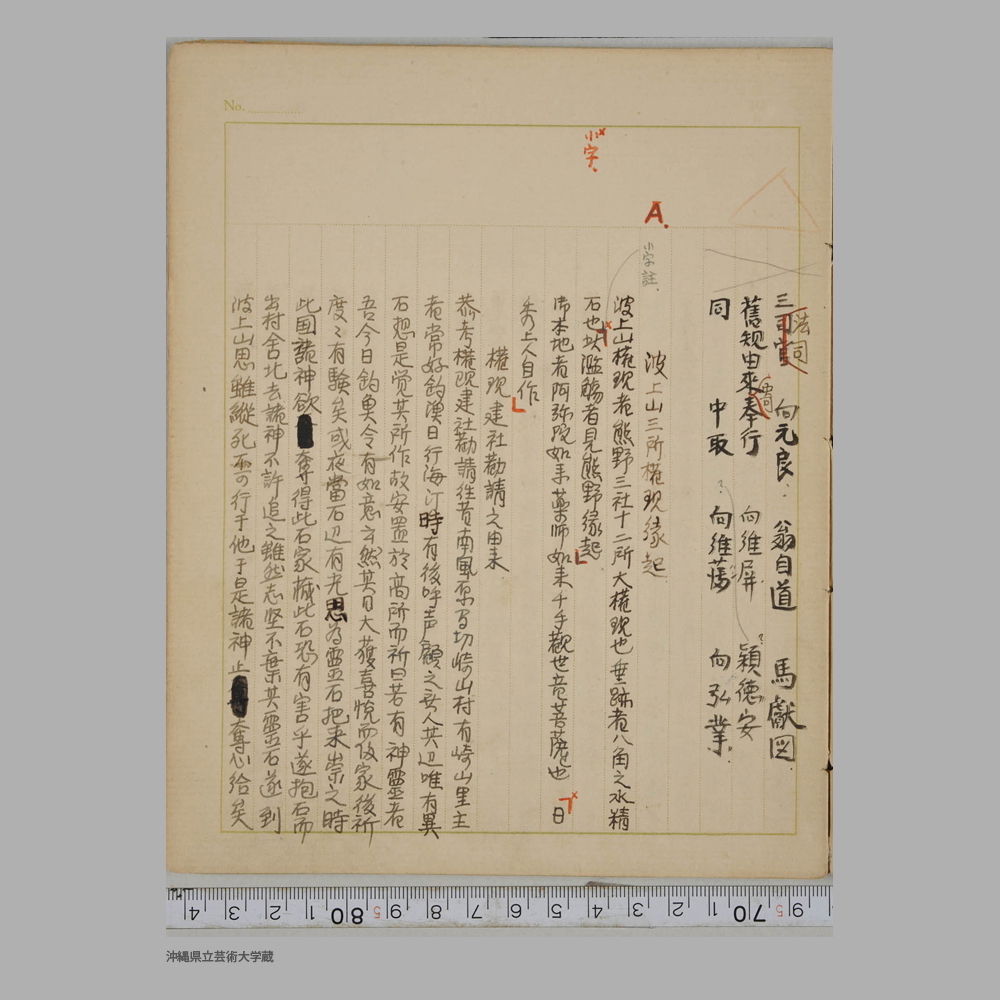 No.
小字
A.
小字註
三司官 向元良 翁自道 馬獻図
法司
舊規由來奉行 向維屏 穎德安
同 中取 向維藩 向弘業
波上山三所権現縁起
波上山権現者熊野三社十二所大権現也垂跡者八角之水精
石也其濫觴者見熊野縁起
御本地者阿弥陀如来薬師如来千手觀世音菩薩也 日
秀上人自作
権現建社勸請之由来
恭考権現建社勸請往昔南風原間切崎山村有崎山里主
者常好釣漁日行海汀時有後呼声顧之無人其辺唯有異
石想是覚其所作故安置於高所而祈曰若有神靈者
吾今日釣魚令有如意云然其日大獲喜悦而皈家後祈
度々有驗矣或夜當石辺有光思為靈石抱来崇之時
此国諸神欲奪得此石家藏此石恐有害乎遂抱石而
出村舍北去諸神不許追之雖然志堅不棄其靈石遂到
波上山思雖縱死不可行于他于是諸神止奪心給矣
2 3 4 5 6 7 8 9 80 1 2 3 4 5 6 7 8 9 70 1 2 3 4
沖縄県立芸術大学蔵